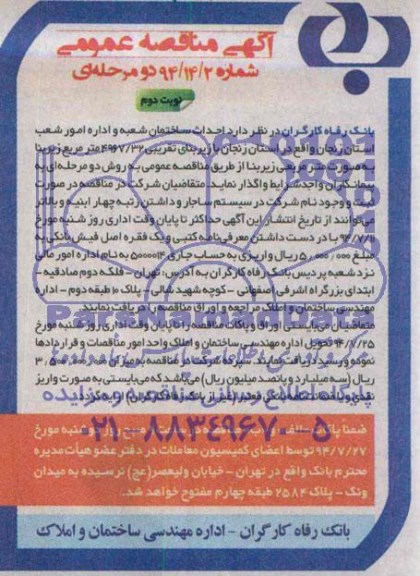 آگهی مناقصه عمومی
شماره ۹۴/۱۴/۲ دو مرحله‌ای
نوبت دوم
بانک رفاه کارگران در نظر دارد احداث ساختمان شعبه و اداره امور شعب
استان زنجان واقع در استان زنجان با زیربنای تقریبی ۴۹۶۷/۳۲ متر مربع زیربنا
به صورت متر مربعی زیربنا از طریق مناقصه عمومی به روش دو مرحله‌ای به
پیمانکاران واجد شرایط واگذار نماید. متقاضیان شرکت در مناقصه در صورت
ثبت و وجود نام شرکت در سیستم ساجار و داشتن رتبه چهار ابنیه و بالاتر
می‌توانند از تاریخ انتشار این آگهی حداکثر تا پایان وقت اداری روز شنبه مورخ
با در دست داشتن معرفی‌نامه کتبی و یک فقره اصل فیش بانکی به
مبلغ ۵,۰۰۰,۰۰۰ ریال واریزی به حساب جاری به نام اداره امور مالی
نزد شعبه پردیس بانک رفاه کارگران به آدرس: تهران - فلکه دوم صادقیه -
ابتدای بزرگراه اشرفی اصفهانی - کوچه شهید شالی - پلاک ۱۰ طبقه دوم - اداره
مهندسی ساختمان و املاک مراجعه و اوراق مناقصه را دریافت نمایند.
متقاضیان می‌بایستی اوراق و پاکات مناقصه را تا پایان وقت اداری روز شنبه مورخ
۹۴/۷/۲۵ تحویل اداره مهندسی ساختمان و املاک واحد امور مناقصات و قراردادها
نموده و رسید دریافت نمایند. سپرده شرکت در مناقصه به میزان ۳,۵۰۰,۰۰۰,۰۰۰
ریال (سه میلیارد و پانصد میلیون ریال) می‌باشد که می‌بایستی به صورت واریز
نقدی یا ضمانت‌نامه بانکی (غیر از بانک رفاه کارگران) ارایه گردد.
ضمنا پاکات صبح روز دوشنبه مورخ
۹۴/۷/۲۷ توسط اعضای کمیسیون معاملات در دفتر عضو هیأت مدیره
محترم بانک واقع در تهران - خیابان ولیعصر(عج) نرسیده به میدان
ونک - پلاک ۲۵۸۴ طبقه چهارم مفتوح خواهد شد.
بانک رفاه کارگران - اداره مهندسی ساختمان و املاک
۰۲۱-۸۸۳۴۹۶۷۰-۵